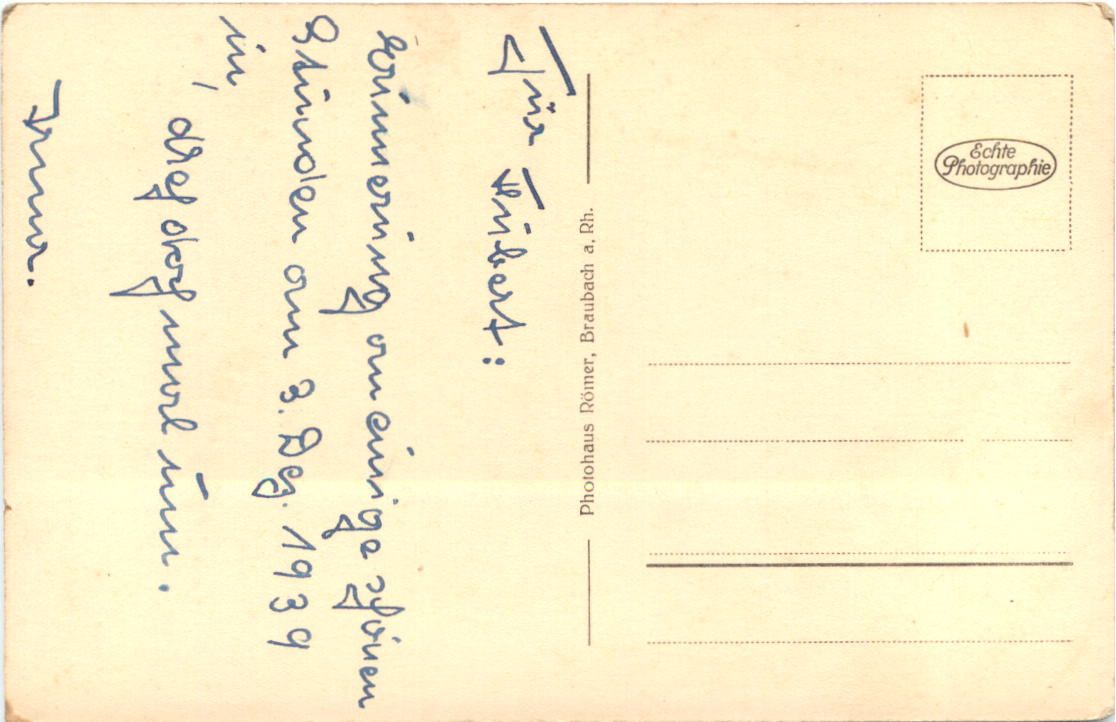 Für Hubert:
Erinnerung an einige schönen
Stunden am 3. Dez. 1939
in,
dreh doch mal um.
Irma.
Photohaus Römer, Braubach a. Rh.
Echte
Photographie